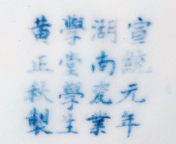 宣統元年
湖南瓷業
學堂學生
黃正秋製